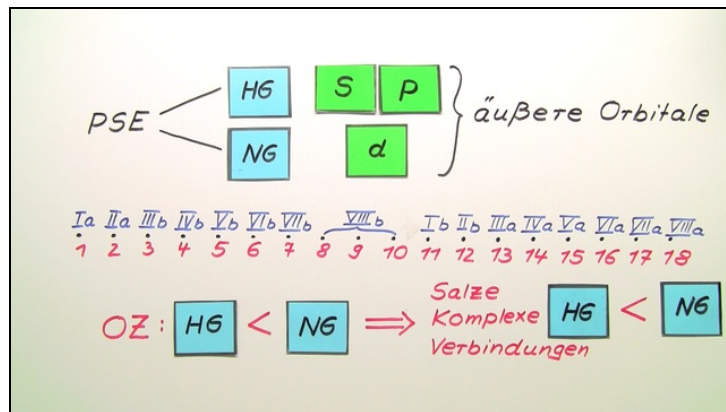 PSE
HG S P
NG d
äußere Orbitale
Ia IIa IIIb IVb Vb VIb VIIb VIIIb Ib IIb IIIa IVa Va VIa VIIa VIIIa
1 2 3 4 5 6 7 8 9 10 11 12 13 14 15 16 17 18
OZ: HG < NG ⟹ Salze
Komplexe
Verbindungen
HG < NG